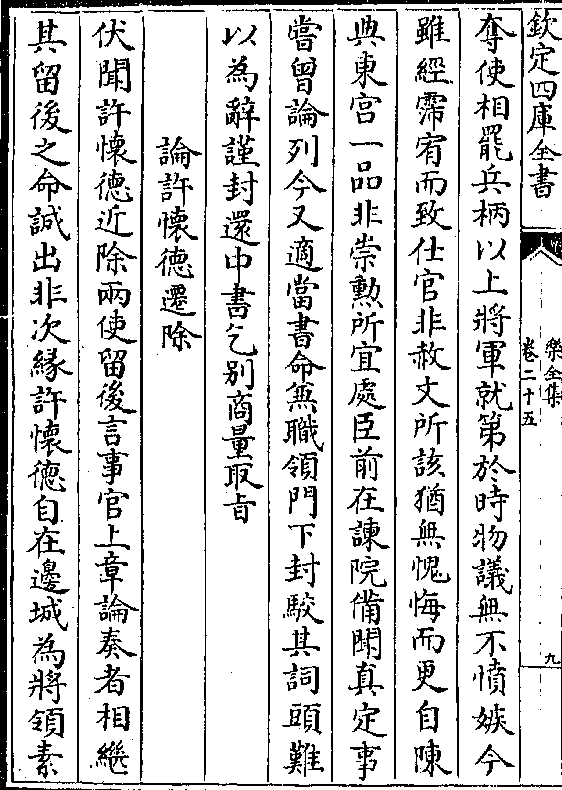 欽定四庫全書
樂全集
卷二十五
九
奪使相罷兵柄以上將軍就第於時物議無不憤嫉今
雖經霈宥而致仕官非赦文所該猶無愧悔而更自陳
典東宫一品非崇勲所宜處臣前在諫院備聞真定事
嘗曾論列今又適當書命無職領門下封駮其詞頭難
以為辭謹封還中書乞别商量取旨
論許懐德遷除
伏聞許懐德近除兩使留後言事官上章論奏者相繼
其留後之命誠出非次緣許懐德自在邊城為將領素